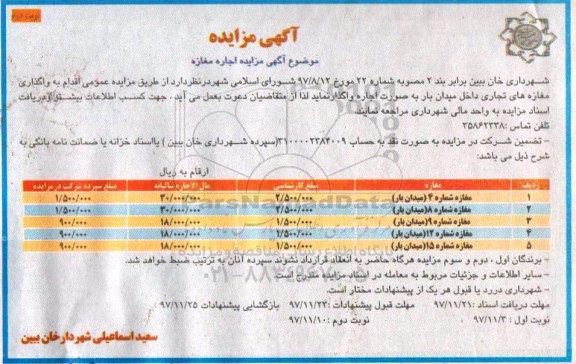 نوبت دوم
آگهی مزایده
موضوع آگهی مزایده اجاره مغازه
شهرداری خان ببین برابر بند ۲ مصوبه شماره ۲۲ مورخ ۹۷/۸/۱۲ شورای اسلامی شهر در نظر دارد از طریق مزایده عمومی اقدام به واگذاری
مغازه های تجاری داخل میدان بار به صورت اجاره واگذار نماید لذا از متقاضیان دعوت بعمل می آید ، جهت کسب اطلاعات بیشتر و دریافت
اسناد مزایده به واحد مالی شهرداری مراجعه نمایند.
تلفن تماس :۳۵۸۶۲۳۳۸
- تضمین شرکت در مزایده به صورت نقد به حساب ۳۱۰۰۰۰۲۳۸۴۰۰۹(سپرده شهرداری خان ببین ) یا اسناد خزانه یا ضمانت نامه بانکی به
شرح ذیل می باشد:
ارقام به ریال
ردیف مغازه مبلغ کارشناسی مال الاجاره سالیانه مبلغ سپرده شرکت در مزایده
۱ مغازه شماره ۴ (میدان بار) ۲/۵۰۰/۰۰۰ ۳۰/۰۰۰/۰۰۰ ۱/۵۰۰/۰۰۰
۲ مغازه شماره ۸(میدان بار) ۲/۵۰۰/۰۰۰ ۳۰/۰۰۰/۰۰۰ ۱/۵۰۰/۰۰۰
۳ مغازه شماره ۹(میدان بار) ۱/۵۰۰/۰۰۰ ۱۸/۰۰۰/۰۰۰ ۹۰۰/۰۰۰
۴ مغازه شماره ۱۲(میدان بار) ۱/۵۰۰/۰۰۰ ۱۸/۰۰۰/۰۰۰ ۹۰۰/۰۰۰
۵ مغازه شماره ۱۵(میدان بار) ۱/۵۰۰/۰۰۰ ۱۸/۰۰۰/۰۰۰ ۹۰۰/۰۰۰
- برندگان اول ، دوم و سوم مزایده هرگاه حاضر به انعقاد قرارداد نشوند سپرده آنان به ترتیب ضبط خواهد شد.
- سایر اطلاعات و جزئیات مربوط به معامله در اسناد مزایده مندرج است.
- شهرداری در رد یا قبول هر یک از پیشنهادات مختار است.
مهلت دریافت اسناد :۹۷/۱۱/۲۱ مهلت قبول پیشنهادات :۹۷/۱۱/۲۳ بازگشایی پیشنهادات ۹۷/۱۱/۲۵
نوبت اول : ۹۷/۱۱/۳ نوبت دوم :۹۷/۱۱/۱۰
سعید اسماعیلی شهردار خان ببین